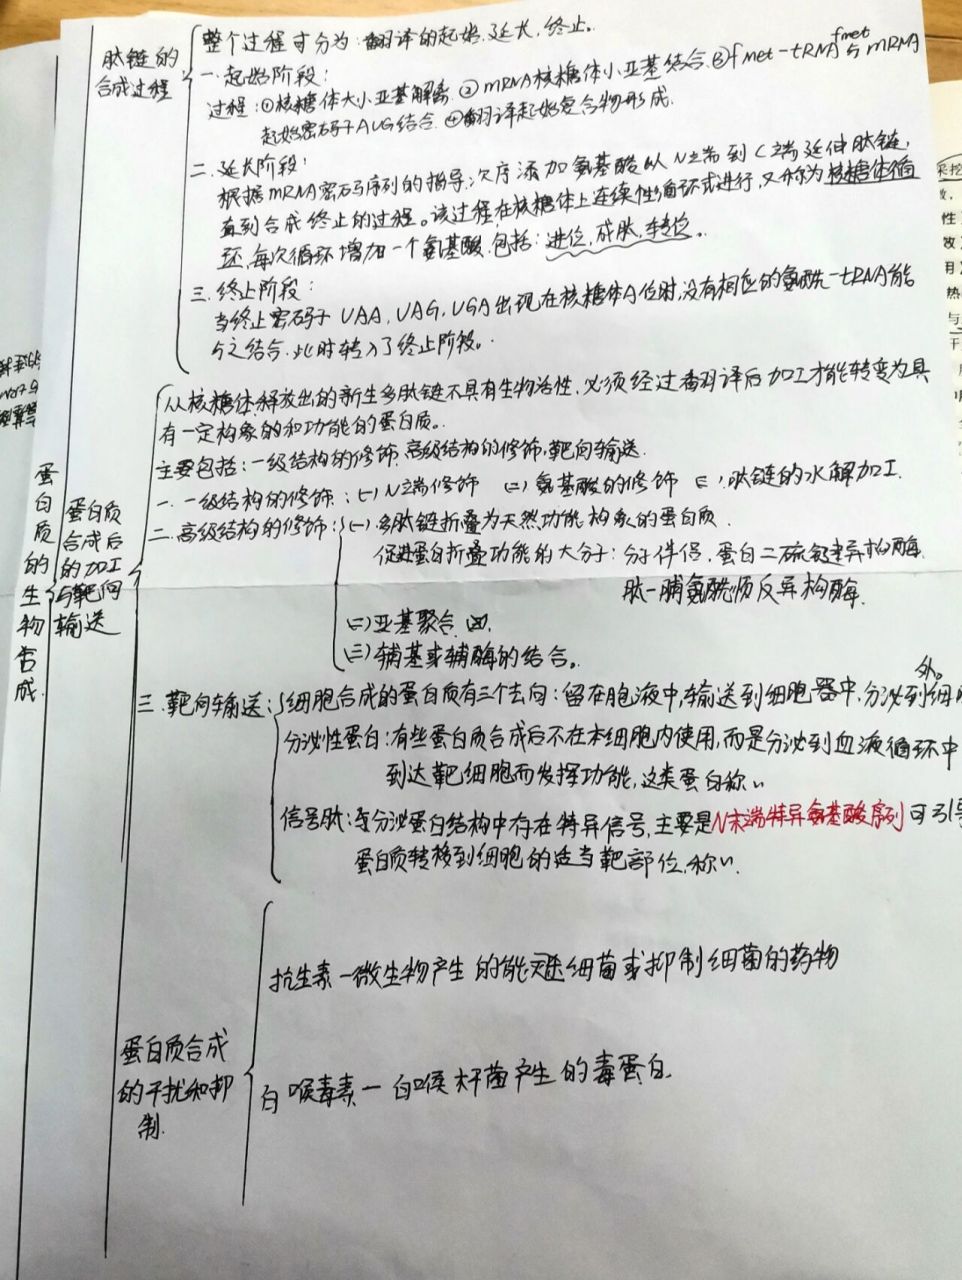 蛋白质的生物合成.
肽链的
合成过程
整个过程可分为:翻译的起始.延长.终止。
一.起始阶段:
过程:①核糖体大小亚基解离.②mRNA核糖体小亚基结合.③fmet-tRNA fmet与mRNA
起始密码子AUG结合.④翻译起始复合物形成.
二.延长阶段:
根据mRNA密码序列的指导,次序添加氨基酸从N端到C端延伸肽链,
直到合成终止的过程。该过程在核糖体上连续性循环式进行,又称为核糖体循
环,每次循环增加一个氨基酸.包括:进位,成肽,转位。
三.终止阶段:
当终止密码子UAA,UAG,UGA出现在核糖体A位时,没有相应的氨酰-tRNA能
与之结合,此时转入了终止阶段。
蛋白质
合成后
的加工
与靶向
输送
从核糖体释放出的新生多肽链不具有生物活性,必须经过翻译后加工才能转变为具
有一定构象的和功能的蛋白质。
主要包括:一级结构的修饰.高级结构的修饰,靶向输送.
一.一级结构的修饰:(一)N端修饰 (二)氨基酸的修饰 (三).肽链的水解加工.
二.高级结构的修饰:(一).多肽链折叠为天然功能构象的蛋白质.
促进蛋白折叠功能的大分子:分子伴侣.蛋白二硫键异构酶.
肽-脯氨酰顺反异构酶.
(二)亚基聚合.
(三)辅基或辅酶的结合。
三.靶向输送:细胞合成的蛋白质有三个去向:留在胞液中,输送到细胞器中.分泌到细胞外。
分泌性蛋白:有些蛋白质合成后不在本细胞内使用,而是分泌到血液循环中
到达靶细胞而发挥功能,这类蛋白称〃
信号肽:与分泌蛋白结构中存在特异信号,主要是N末端特异氨基酸序列可引导
蛋白质转移到细胞的适当靶部位,称〃.
蛋白质合成
的干扰和抑
制.
抗生素-微生物产生的能灭细菌或抑制细菌的药物
白喉毒素-白喉杆菌产生的毒蛋白.